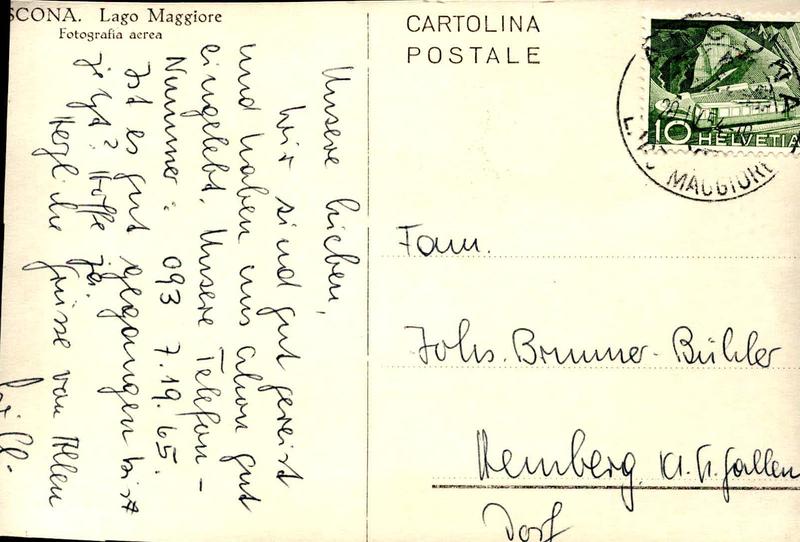 SCONA. Lago Maggiore
Fotografia aerea
Unsere Lieben,
Wir sind gut gereist
und haben uns schon gut
eingelebt. Unsere Telefon-
Nummer: 093 7.19.65.
Ist es gut gegangen bis
jetzt? Hoffe ja.
Herzliche Grüsse von Allen
CARTOLINA
POSTALE
10 HELVETIA
MAGGIORE
Fam.
Johs. Brunner-Bühler
Hemberg Kt. St. Gallen
Dorf